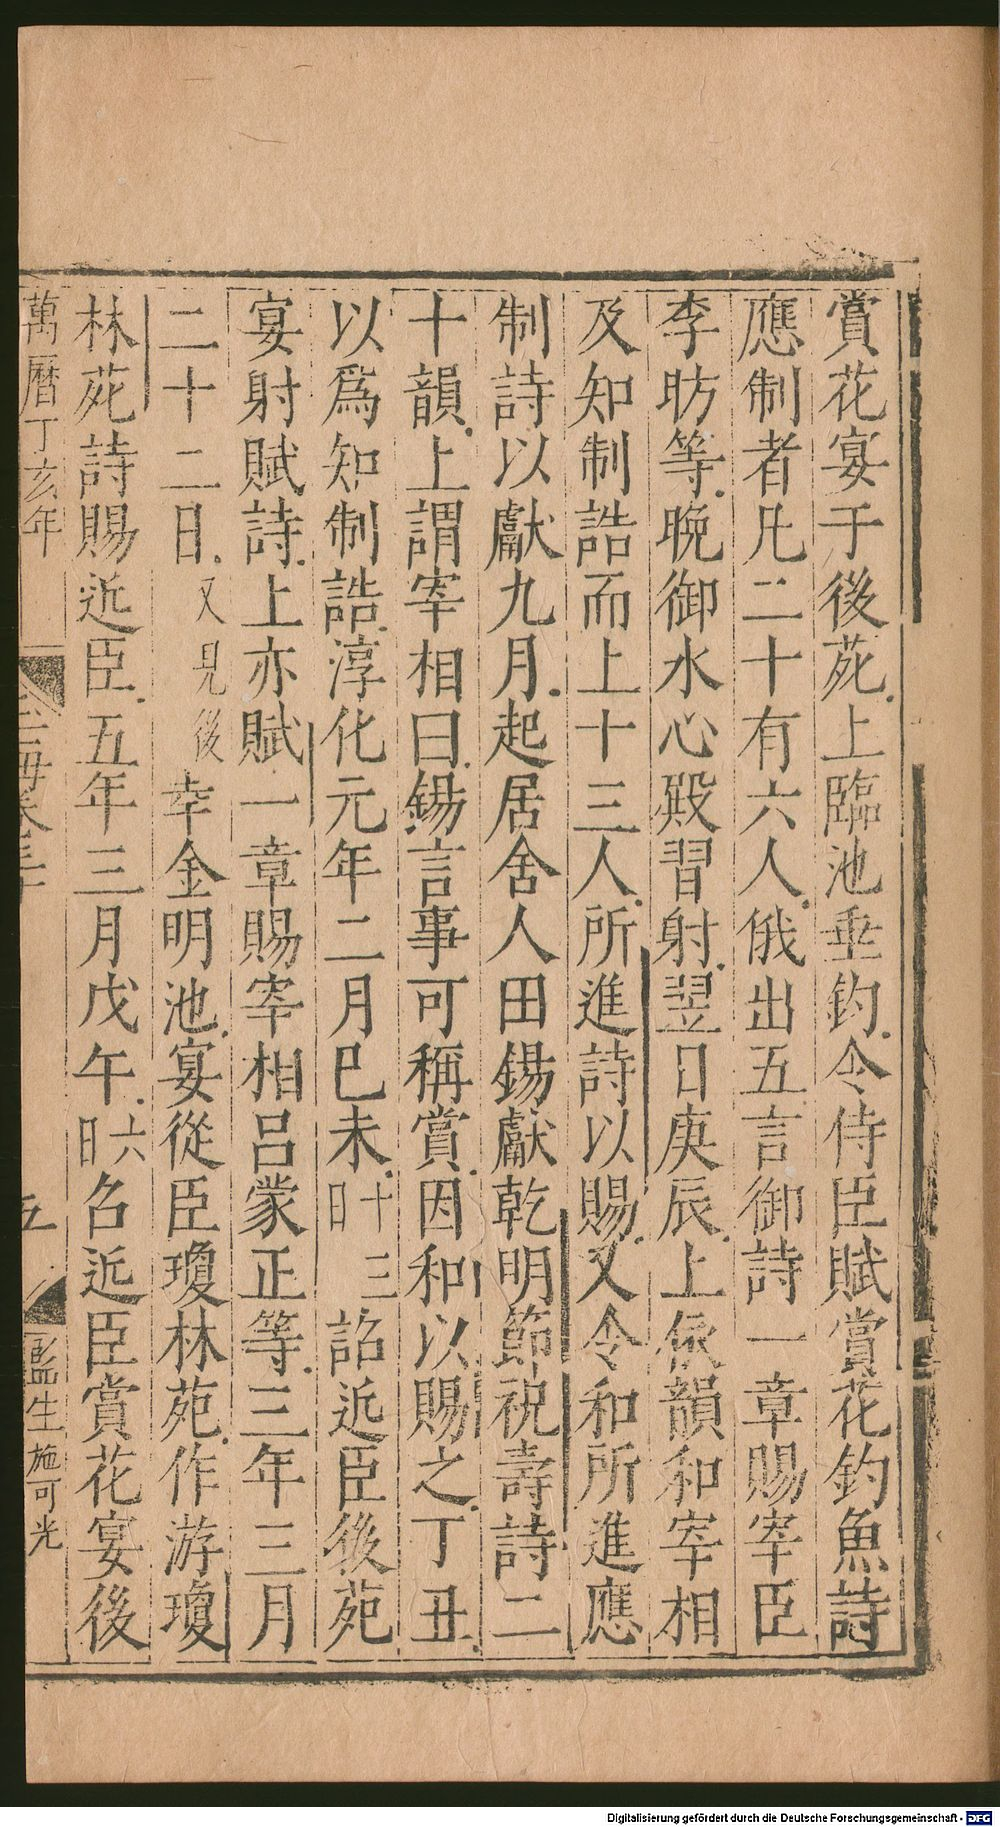 賞花宴于後苑上臨池垂釣令侍臣賦賞花釣魚詩
應制者凡二十有六人俄出五言御詩一章賜宰臣
李昉等晚御水心殿習射翌日庚辰上依韻和宰相
及知制誥而上十三人所進詩以賜又令和所進應
制詩以獻九月起居舍人田錫獻乾明節祝壽詩二
十韻上謂宰相曰錫言事可稱賞因和以賜之丁丑
以爲知制誥淳化元年二月巳未十三日詔近臣後苑
宴射賦詩上亦賦一章賜宰相呂蒙正等三年三月
二十二日又見後幸金明池宴從臣瓊林苑作游瓊
林苑詩賜近臣五年三月戊午六日召近臣賞花宴後
萬曆丁亥年
五
監生施可光
Digitalisierung gefördert durch die Deutsche Forschungsgemeinschaft - DFG